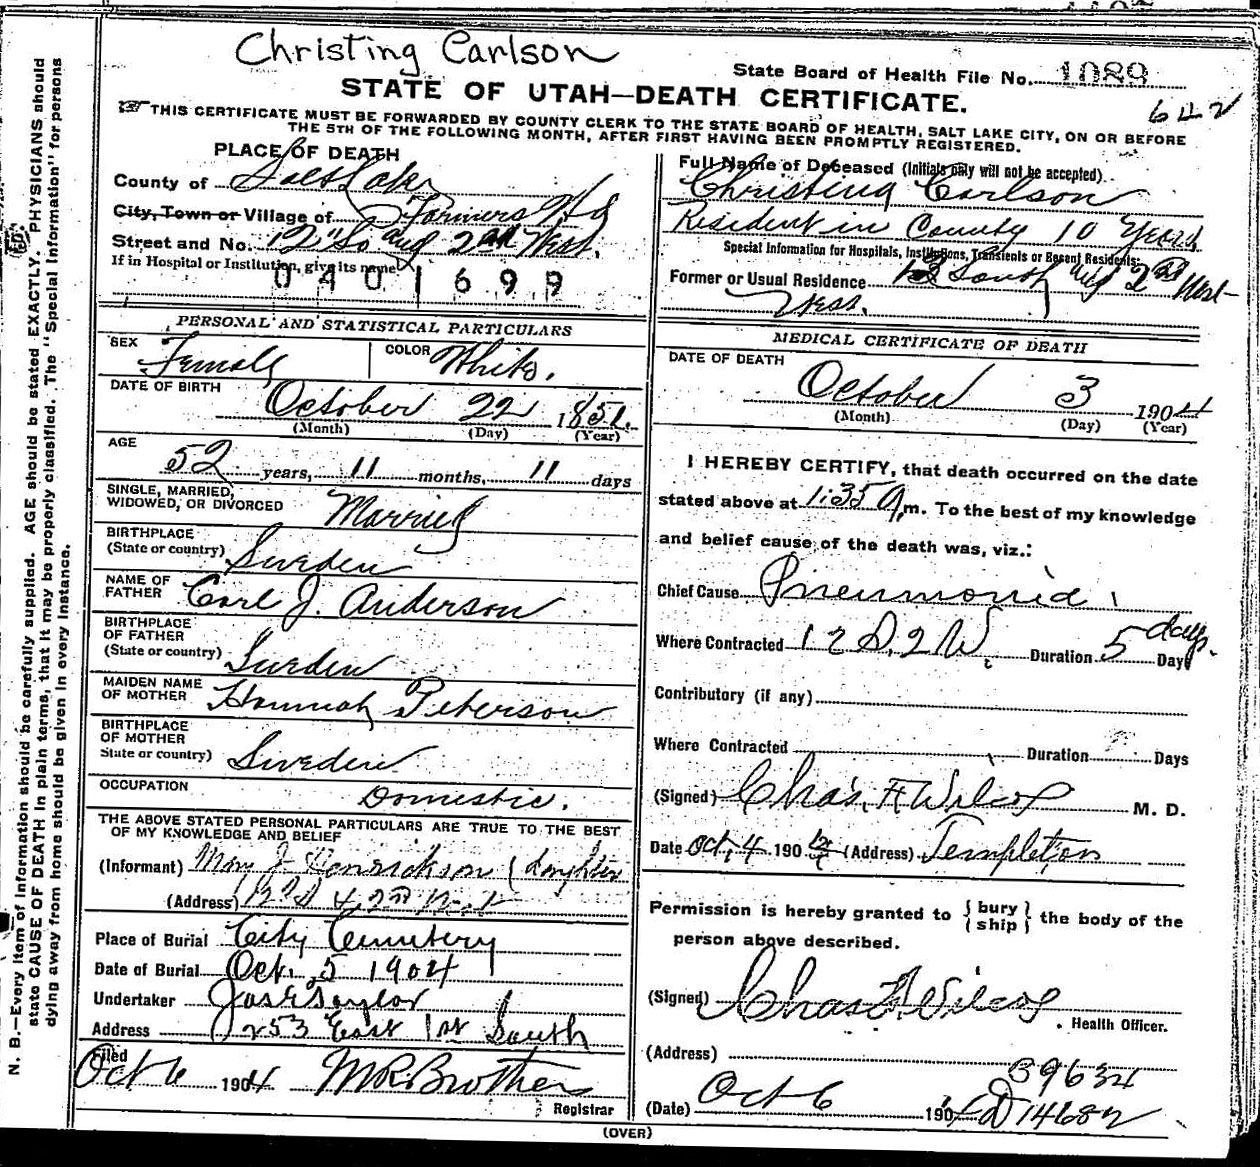 Christing Carlson
State Board of Health File No. 1089
STATE OF UTAH—DEATH CERTIFICATE.
642
THIS CERTIFICATE MUST BE FORWARDED BY COUNTY CLERK TO THE STATE BOARD OF HEALTH, SALT LAKE CITY, ON OR BEFORE
THE 5TH OF THE FOLLOWING MONTH, AFTER FIRST HAVING BEEN PROMPTLY REGISTERED.
PLACE OF DEATH
County of Salt Lake
City, Town or Village of Farmers Wd
Street and No. 12" So and 2nd West.
If in Hospital or Institution, give its name
0401699
PERSONAL AND STATISTICAL PARTICULARS
SEX Female COLOR White.
DATE OF BIRTH
October 22 1851.
(Month) (Day) (Year)
AGE
52 years, 11 months, 11 days
SINGLE, MARRIED,
WIDOWED, OR DIVORCED Married
BIRTHPLACE
(State or country) Sweden
NAME OF
FATHER Carl J. Anderson
BIRTHPLACE
OF FATHER
(State or country) Sweden
MAIDEN NAME
OF MOTHER Hannah Peterson
BIRTHPLACE
OF MOTHER
State or country) Sweden
OCCUPATION Domestic.
THE ABOVE STATED PERSONAL PARTICULARS ARE TRUE TO THE BEST
OF MY KNOWLEDGE AND BELIEF
(Informant) Mary J. Henrickson (daughter
(Address) 12 S & 2nd West
Place of Burial City Cemetery
Date of Burial Oct. 5 1904
Undertaker Jos E Taylor
Address 253 East 1st South
Filed
Oct 6 1904 M R Brothers
Registrar
Full Name of Deceased (Initials only will not be accepted)
Christina Carlson
Resident in County 10 Years
Special Information for Hospitals, Institutions, Transients or Recent Residents:
Former or Usual Residence 12 South and 2nd West
West.
MEDICAL CERTIFICATE OF DEATH
DATE OF DEATH
October 3 1904
(Month) (Day) (Year)
I HEREBY CERTIFY, that death occurred on the date
stated above at 1:35 A m. To the best of my knowledge
and belief cause of the death was, viz.:
Chief Cause Pneumonia
Where Contracted 12 S. 2 W. Duration 5 days. Days
Contributory (if any)
Where Contracted Duration Days
(Signed) Chas. F Wilcox M. D.
Date Oct, 4 190 4 (Address) Templeton
Permission is hereby granted to {bury
ship} the body of the
person above described.
(Signed) Chas F Wilcox
Health Officer.
(Address)
39634
(Date) Oct 6 1904 D 14682
(OVER)
N. B.—Every item of information should be carefully supplied. AGE should be stated EXACTLY. PHYSICIANS should
state CAUSE OF DEATH in plain terms, that it may be properly classified. The "Special Information" for persons
dying away from home should be given in every instance.